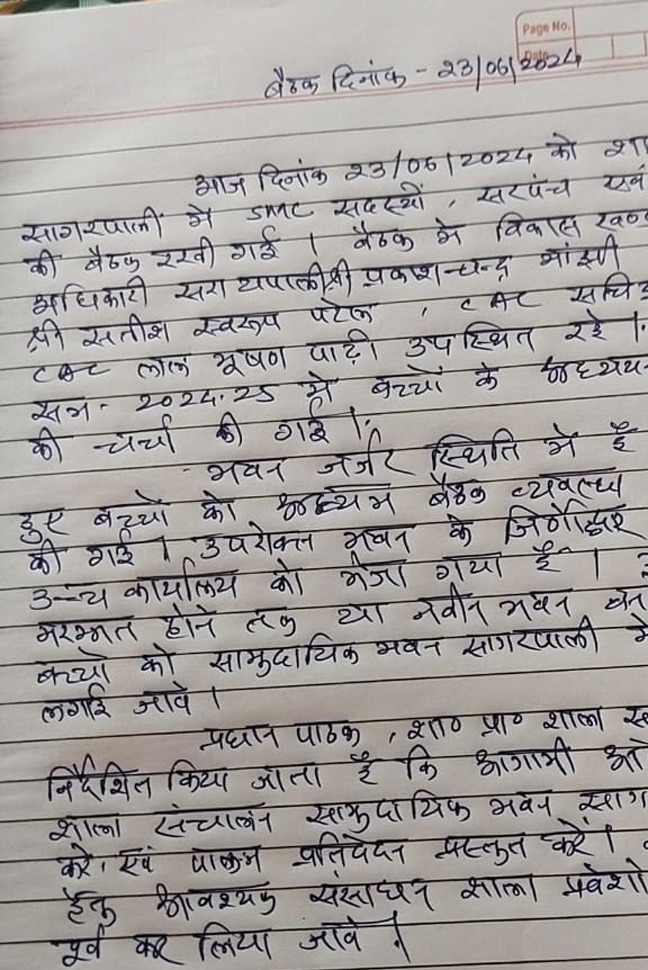 Page No.
Date
बैठक दिनांक - 23/06/2024
आज दिनांक 23/06/2024 को शा
सागरपाली में SMC सदस्यों, सरपंच एवं
की बैठक रखी गई । बैठक में विकास खण्ड
अधिकारी सरायपाली श्री प्रकाश चन्द्र मांझी
श्री सतीश स्वरूप पटेल, CAC
CAC लाल भूषण पाढ़ी उपस्थित रहे ।
सत्र - 2024.25 में बच्चों के अध्ययन
की चर्चा की गई ।
- भवन जर्जर स्थिति में है
हुए बच्चों को बैठक व्यवस्था
की गई । उपरोक्त भवन के
उच्च कार्यालय को भेजा गया है ।
मरम्मत होने तक या नवीन भवन बन
बच्चों को सामुदायिक भवन सागरपाली में
लगाई जावे ।
प्रधान पाठक, शा० प्रा० शाला
निर्देशित किया जाता है कि आगामी
शाला संचालन सामुदायिक भवन साग
करे, एवं पालन प्रतिवेदन प्रस्तुत करें ।
हेतु आवश्यक संसाधन शाला प्रवेशो
पूर्व कर लिया जावे ।